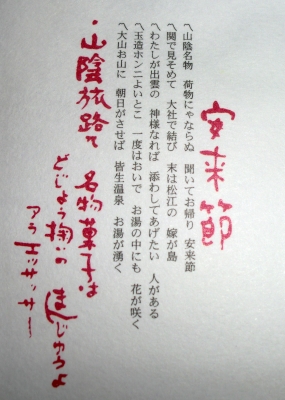 安来節
〽山陰名物　荷物にゃならぬ　聞いてお帰り　安来節
〽関で見そめて　大社で結び　末は松江の　嫁が島
〽わたしが出雲の　神様なれば　添わしてあげたい　人がある
〽玉造ホンニよいとこ　一度はおいで　お湯の中にも　花が咲く
〽大山お山に　朝日がさせば　皆生温泉　お湯が湧く
・山陰旅路で　名物菓子は
どじょう掬いの　まんじゅうよ
アラ　エッサッサー